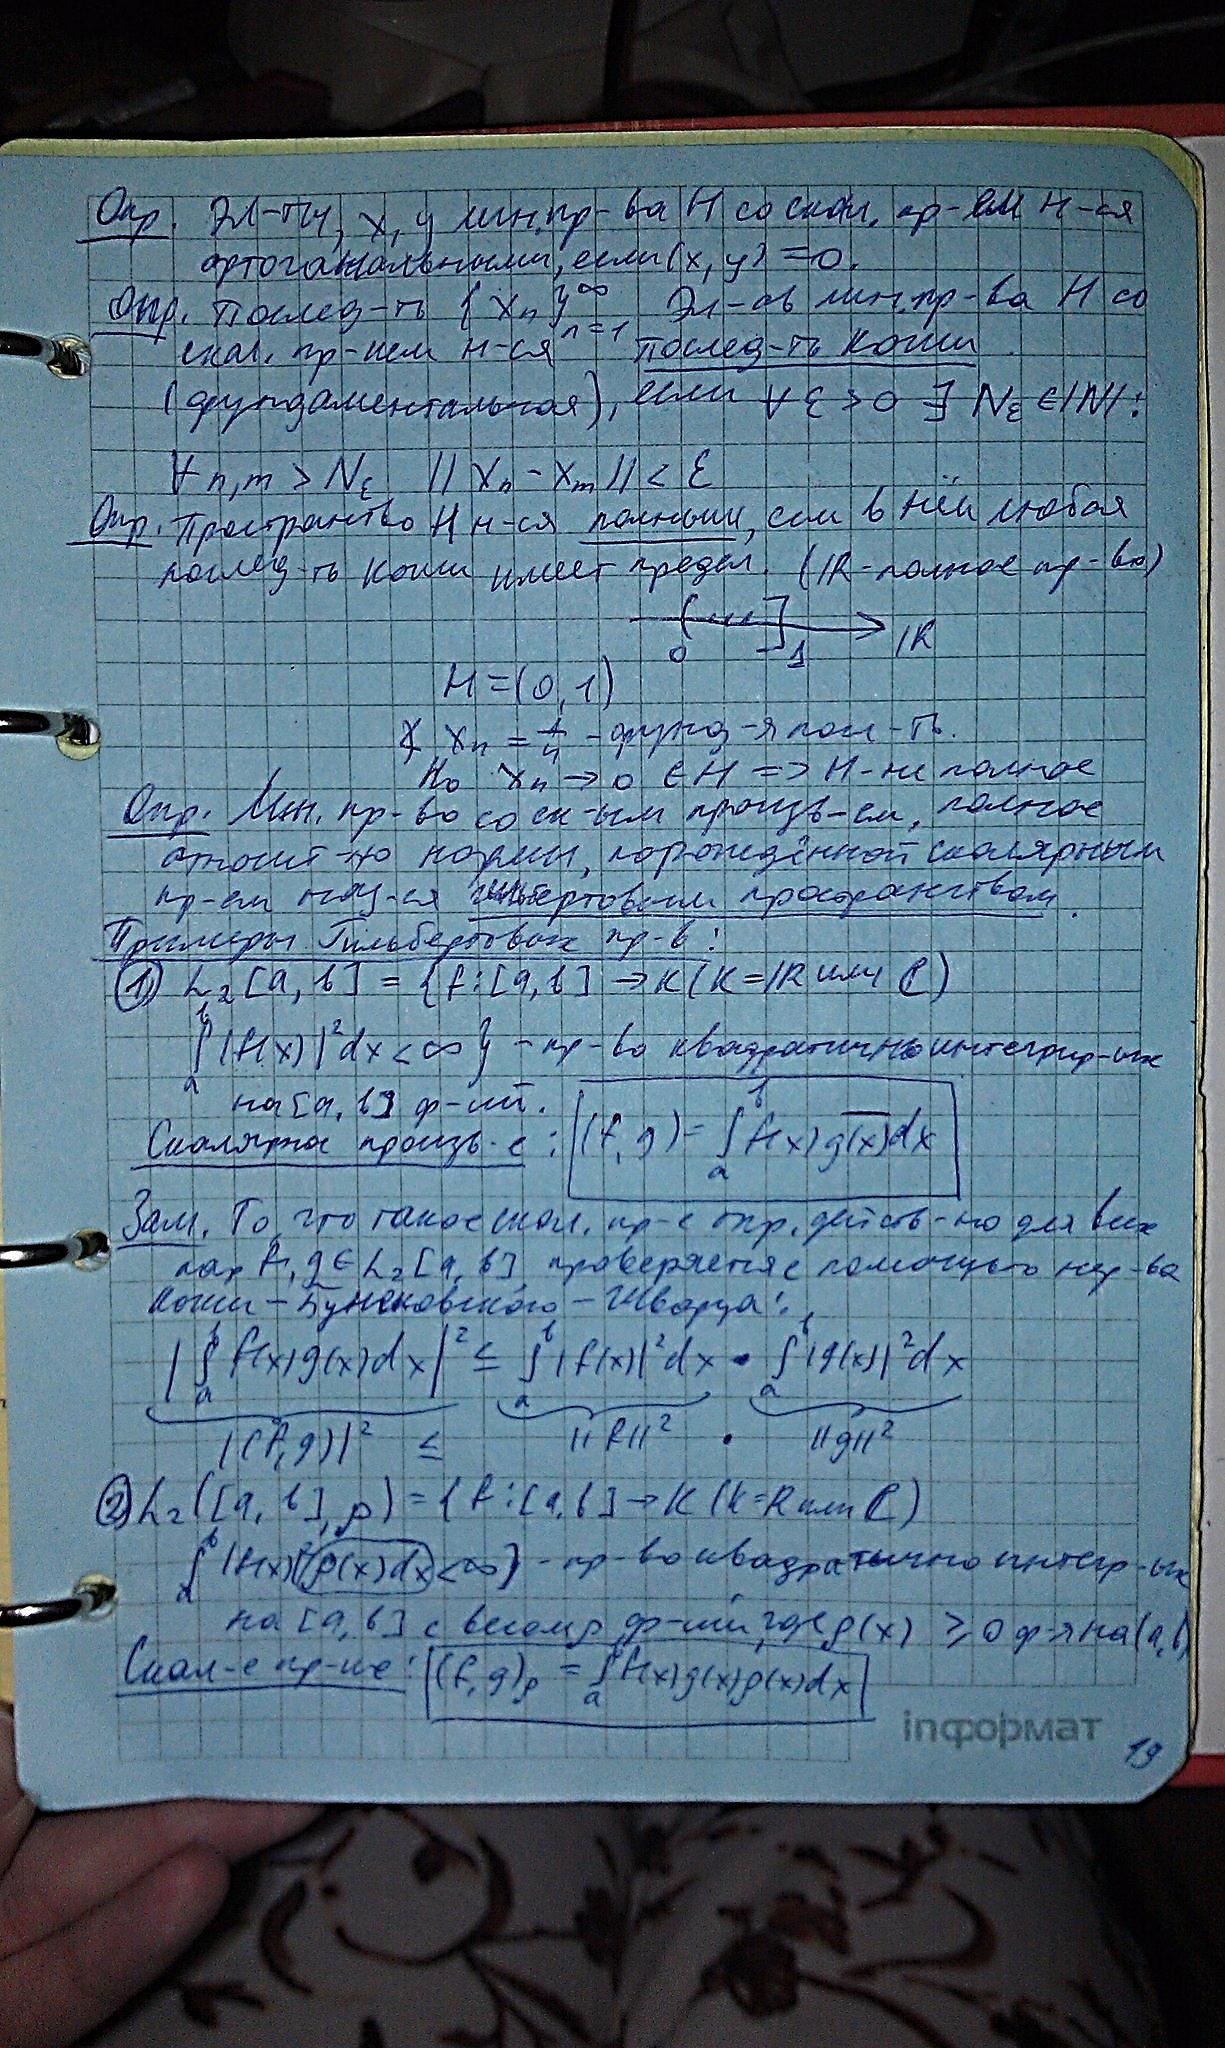 Опр. Эл-ты, x, y лин. пр-ва H со скал. пр-ем н-ся
ортогональными, если (x, y) = 0.
Опр. Послед-ть {x_n}_{n=1}^∞ Эл-ов лин. пр-ва H со
скал. пр-ием н-ся послед-ть Коши
(фундаментальная), если ∀ ε > 0 ∃ N_ε ∈ ℕ:
∀ n, m > N_ε ||x_n - x_m|| < ε
Опр. Пространство H н-ся полным, если в нём любая
послед-ть Коши имеет предел. (ℝ - полное пр-во)
0 1 ℝ
H = (0, 1)
x_n = 1/n - фунд-я посл-ть.
Но x_n → 0 ∈ H => H - не полное
Опр. Лин. пр-во со ск-ым произв-ем, полное
относит-но нормы, порождённой скалярным
пр-ем наз-ся гильбертовым пространством.
Примеры Гильбертовых пр-в:
① L_2 [a, b] = {f: [a, b] → K (K = ℝ или ℂ)
∫_a^b |f(x)|^2 dx < ∞} - пр-во квадратично интегрир-ых
на [a, b] ф-ий.
Скалярное произв-е: (f, g) = ∫_a^b f(x) \overline{g(x)} dx
Зам. То, что такое скал. пр-е опр. действ-но для всех
пар f, g ∈ L_2 [a, b], проверяется с помощью нер-ва
Коши - Буняковского - Шварца:
|∫_a^b f(x) g(x) dx|^2 ≤ ∫_a^b |f(x)|^2 dx • ∫_a^b |g(x)|^2 dx
|(f, g)|^2 ≤ ||f||^2 • ||g||^2
② L_2 ([a, b], ρ) = {f: [a, b] → K (K = R или ℂ)
∫_a^b |f(x)|^2 ρ(x) dx < ∞} - пр-во квадратично интегр-ых
на [a, b] с весом ρ ф-ий, где ρ(x) ≥ 0 ф-я на (a, b)
Скал-е пр-ие: (f, g)_ρ = ∫_a^b f(x) g(x) ρ(x) dx
inформат
19